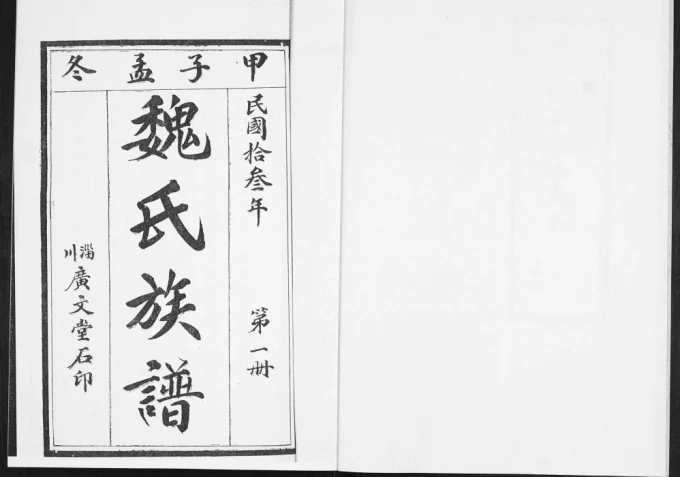 甲子孟冬
民國拾叁年
第一册
魏氏族譜
淄川廣文堂石印